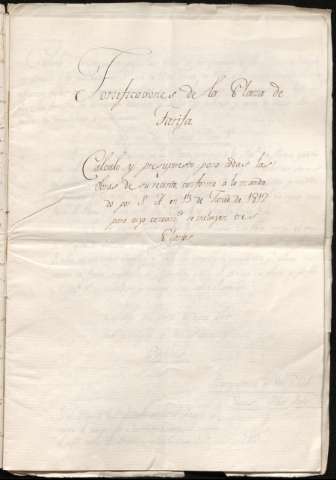 Fortificaciones de la Plaza de
Tarifa
Calculo y presupuesto para todas las
obras de su recinto, conforme a lo manda
do por S. M. en 13 de de 1817
para cuya se incluyen tres
Planos